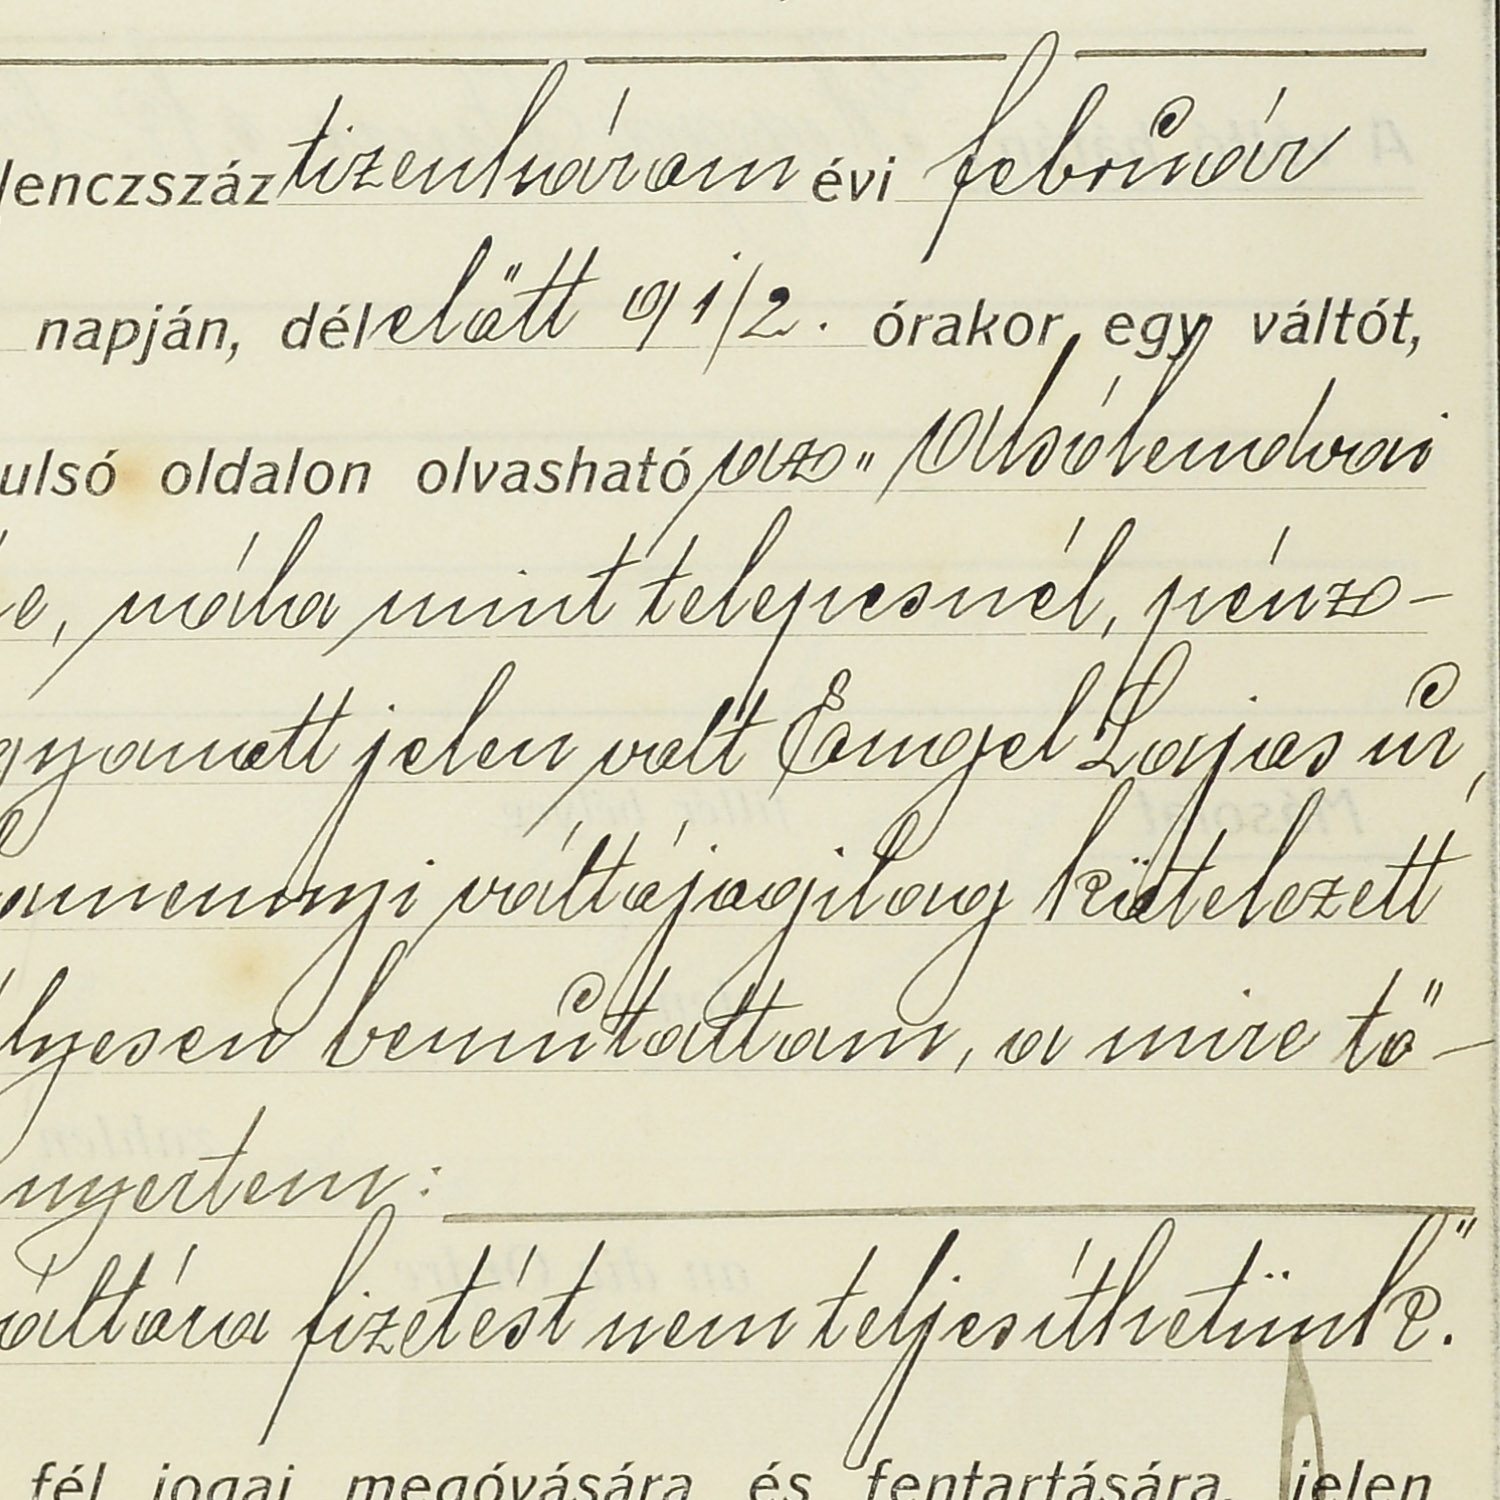 lenczszáz tizenhárom évi február
napján, délelőtt 9 1/2. órakor, egy váltót,
ulsó oldalon olvasható az „Alsólendvai
e, nála mint telepesnél, pénz-
gyanott jelen volt Engel Lajos úr,
amennyi váltójogilag kötelezett
lyesen bemutattam, a mire tő-
nyertem:
áltóra fizetést nem teljesíthetünk."
fél jogai megóvására és fentartására, jelen